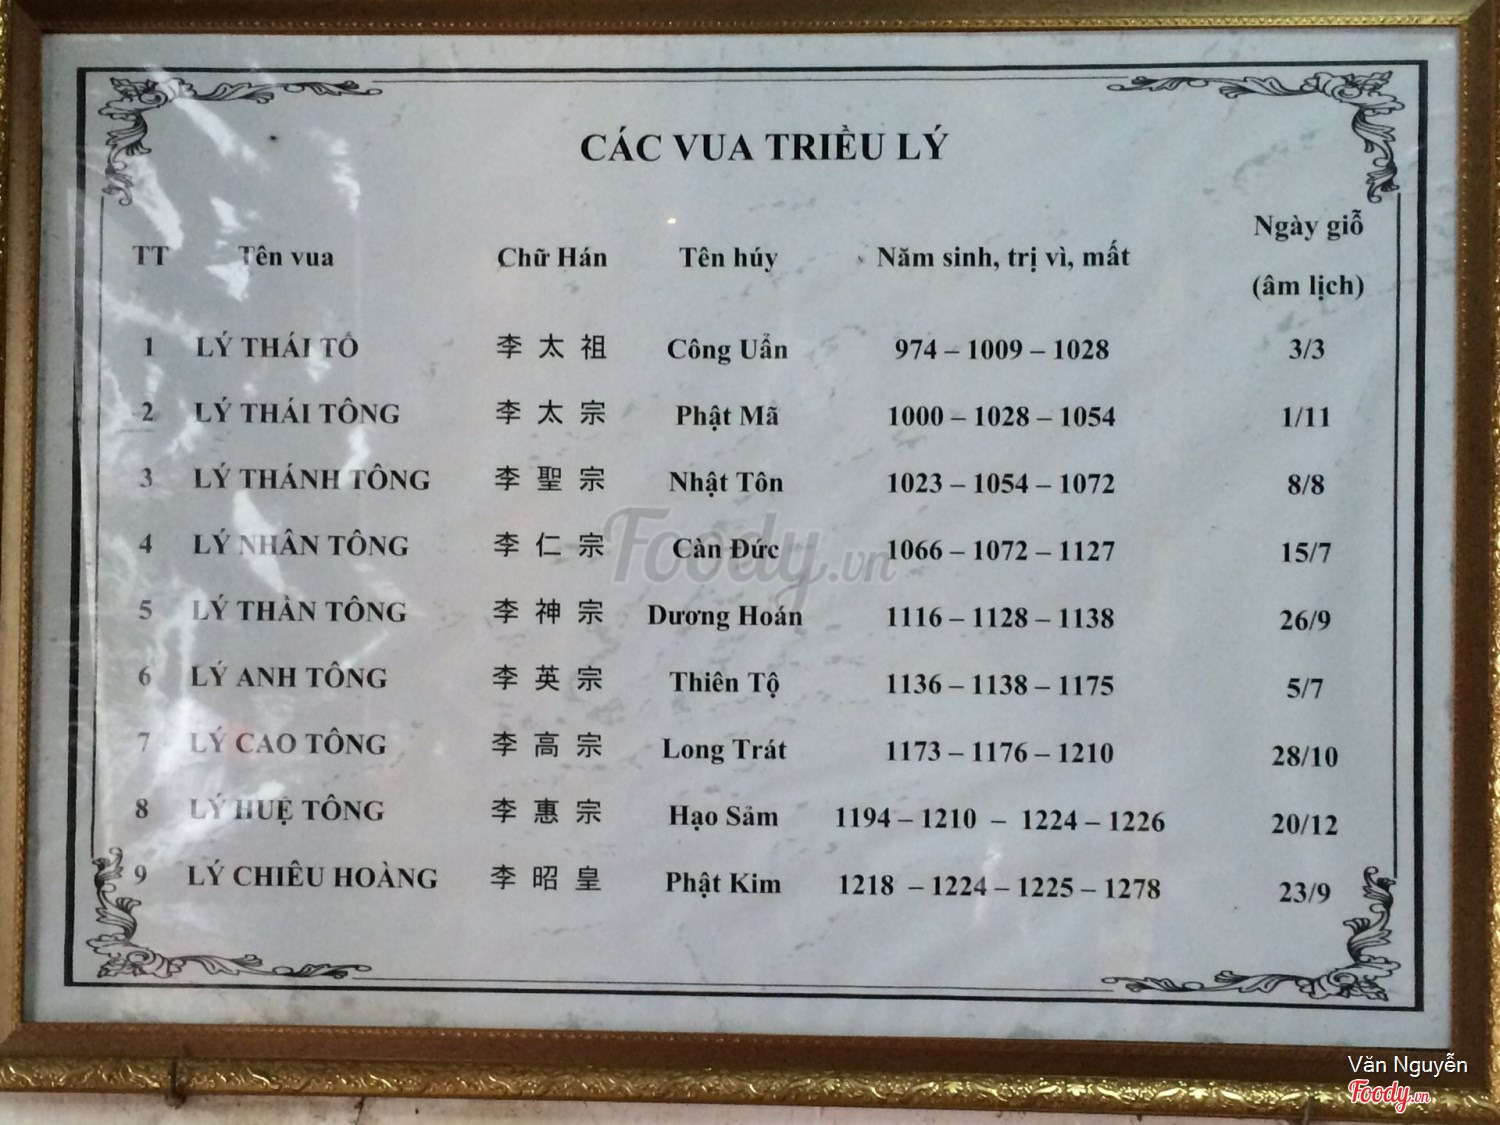 CÁC VUA TRIỀU LÝ
TT Tên vua Chữ Hán Tên húy Năm sinh, trị vì, mất Ngày giỗ (âm lịch)
1 LÝ THÁI TỔ 李 太 祖 Công Uẩn 974 – 1009 – 1028 3/3
2 LÝ THÁI TÔNG 李 太 宗 Phật Mã 1000 – 1028 – 1054 1/11
3 LÝ THÁNH TÔNG 李 聖 宗 Nhật Tôn 1023 – 1054 – 1072 8/8
4 LÝ NHÂN TÔNG 李 仁 宗 Càn Đức 1066 – 1072 – 1127 15/7
5 LÝ THẦN TÔNG 李 神 宗 Dương Hoán 1116 – 1128 – 1138 26/9
6 LÝ ANH TÔNG 李 英 宗 Thiên Tộ 1136 – 1138 – 1175 5/7
7 LÝ CAO TÔNG 李 高 宗 Long Trát 1173 – 1176 – 1210 28/10
8 LÝ HUỆ TÔNG 李 惠 宗 Hạo Sảm 1194 – 1210 – 1224 – 1226 20/12
9 LÝ CHIÊU HOÀNG 李 昭 皇 Phật Kim 1218 – 1224 – 1225 – 1278 23/9
Foody.vn
Văn Nguyễn
Foody.vn